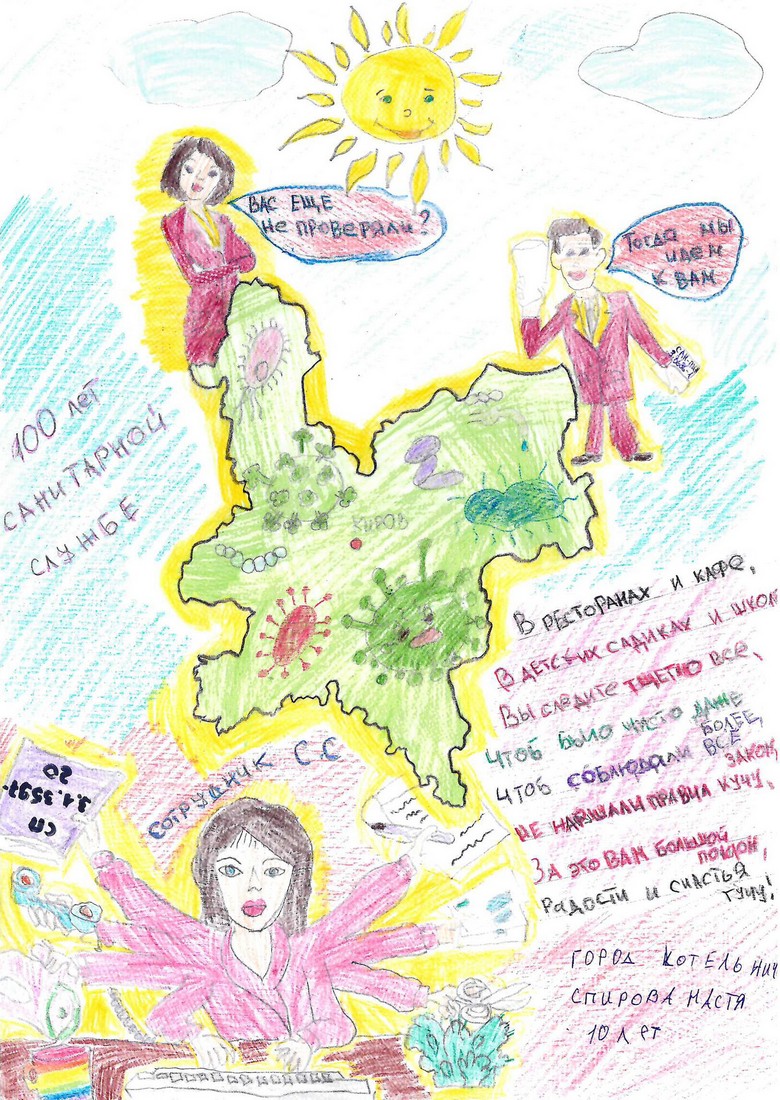 ВАС ЕЩЕ
НЕ ПРОВЕРЯЛИ?
Тогда мы
идем
к вам
САН-ПИН
100 лет
САНИТАРНОЙ
СЛУЖБЕ
КИРОВ
В РЕСТОРАНАХ И КАФЕ,
В ДЕТСКИХ САДИКАХ И ШКОЛ
Вы следите ТЩЕТНО ВСЕ,
Чтоб было чисто даже
более,
Чтоб соблюдали все
закон,
НЕ НАРУШАЛИ ПРАВИЛ КУЧУ.
За это ВАМ большой
поклон,
Радости и счастья
тучу!
Сотрудник С.С
СП
3.1.3597-
20
ГОРОД КОТЕЛЬНИЧ
СПИРОВА НАСТЯ
10 лет